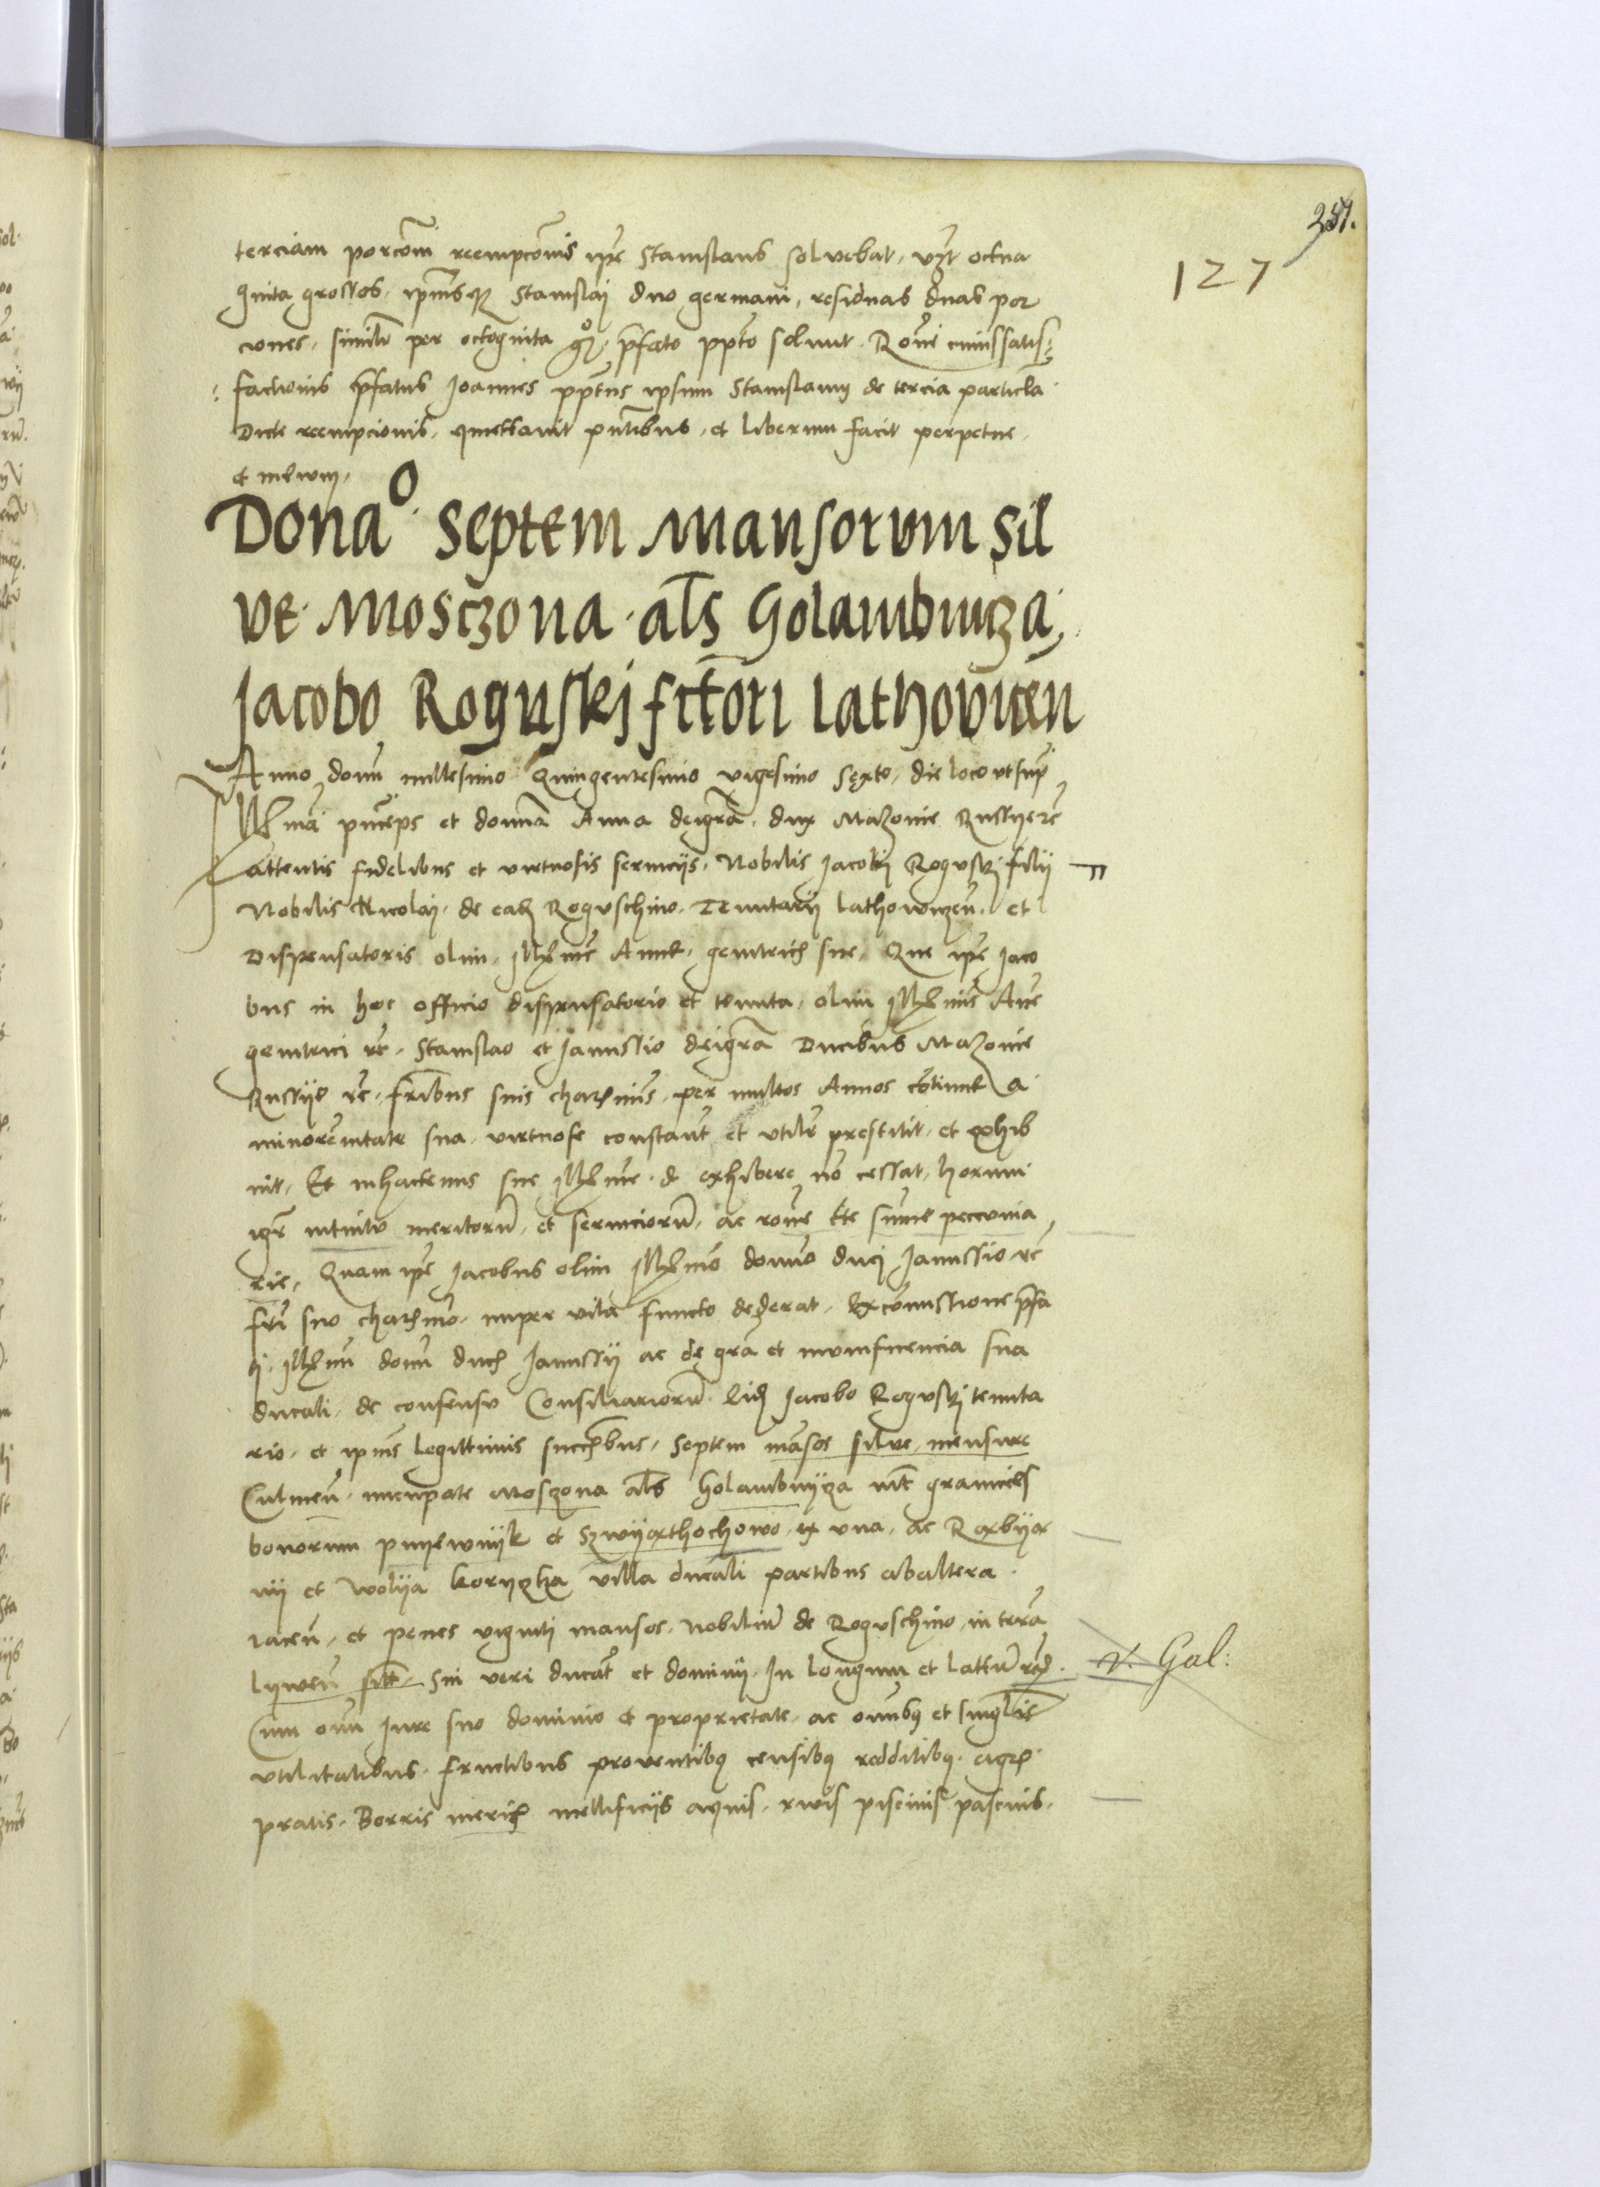 251.
127
terciam porcōm reempcōnis ip̄e Stanislaus solvebat, vȝt octua
ginta grossos, ip̄iusqȝ Stanislaj duo germani, residuas duas por
ciones, similr̄ per octoginta gᵒȝ, p̄fato pp̄to solvut. Rōne cuiussatis
factionis p̄fatus Joannes pp̄tus ipsum Stanislaum de tercia particl̄a
Dicte reempcionis, quiettavit pn̄tibus, et liberum facit perpetue
et in ewm,
Donaᵒ Septem Mansorum Sil
ve Mosczona als̄ Golambnicza,
Jacobo Roguskj fct̄ori Lathoviceñ
Anno domī millesimo Quingentesimo vigesimo Sexto, die loco ut sup̄
Illm̄a princeps et domīa Anna deigrā, dux Mazovie Russyerc̄
attentis fidelibus et virtuosis serviciis, Nobilis Jacobj Roguskj filij
Nobilis Nicolaj, de eadȝ Roguschino, Tenutarij Lathowiczeñ, et
Dispensatoris olim, Illm̄e Anne, genitricȝ sue, Que ip̄e Jaco
bus in hoc officio dispensatorio et tenuta, olim Illm̄e Ane
genitrici rc̄, Stanislao et Janussio deigrā Ducibus Mazovie
Russije rc̄, fr̄ibus suis charissimis, per multos Annos cōtinue a
minorennitate sua, virtuose constant̄ et utilr̄ prestitit, et exhib
uit, Et inhactenus sue Illm̄e d exhibere nō cessat, horum
igr̄ intuitu meritorū, et serviciorū, ac rōne cte sum̄e peccunia
rie, Quam ip̄e Jacobus olim Illm̄o domīo ducj Janussio rc̄
fr̄i suo charissimo, nuper vita functo dederat, Ex cōmissione p̄fa
ti Illm̄i domī ducȝ Janussij ac de grā et munificencia sua
ducali, de consensu Consiliariorū, Eidȝ Jacobo Roguskj tenuta
rio, et ip̄ius legittimis successoribus, Septem māsos silve, mensure
Culmeñ, nucupate Mosczona als̄ Golambnycza int̄ granicies
bonorum pnyewnyk et Szwyathochowo, ex una, ac
nij et Wolija koryczka villa ducali partibus abaltera
iaceñ, et penes viginti mansos, Nobiliū de Roguschino, in terrā
lyweñ sitt̄, Sui veri ducat̄ et dominij, In longum et lattū
Cum omī Jure suo dominio et proprietate, ac omībȝ et singul̄is
utilitatibus, fructibus proventibȝ censibȝ redditibȝ, agris
pratis, Borris mericȝ mellificijs aquis, rivis piscinis pascuis,
v. Gal: